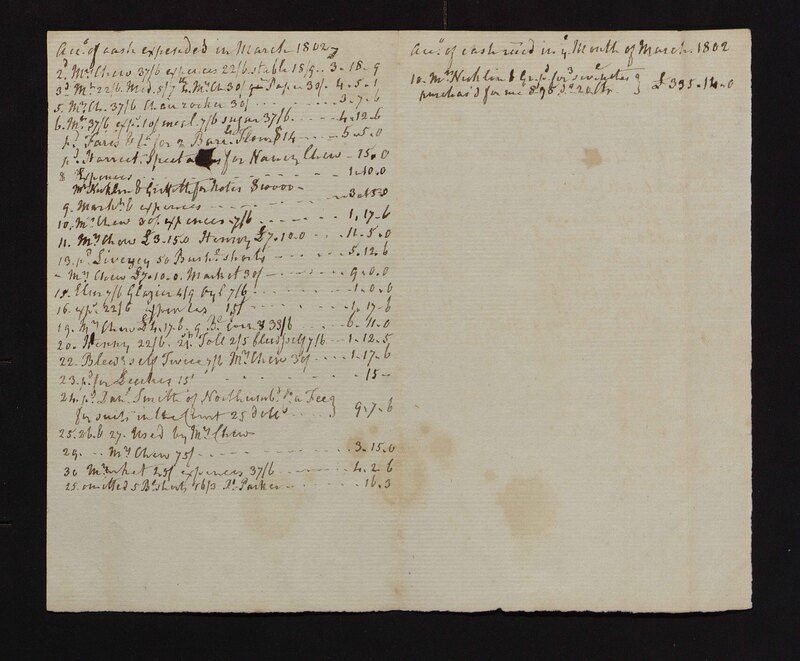 Acc.t of cash expended in March 1802
2.d Mrs Chew 37/6 expences 22/6 stable 18/9 - 3-18-9
3.d Mrs 22/6 Mrs Ch. 30/ Paper 30/. 4-5-1
5. Mrs Ch. 37/6 Chair rocker 30/ - - - 3-7-6
6. Mrs 37/6 exp.s 10/ 7/6 sugar 37/6 - - - 4-12-6
p.d for 2 Barr.s Flour $14 - - - 5-5-0
p.d Harriet for Nancy Chew - 15.0
8 Expences - - - 1-10.0
Mr Nicklin & Griffith for Notes $10000 -
9. Mark.t & expences - - - 3-15-0
10. Mrs Chew 30/. expences 7/6 - - - 1,17-6
11. Mrs Chew £3.15.0 Henry £7.10.0 - - 11-5.0
13. p.d Livezey 50 Bush.s shorts - - - 5.12.6
- Mrs Chew £7.10.0. Market 30/ - - - 9.0.0
7/6 Glazier 4/9 7/6 - - - 1.0.0
16. exp.s 22/6 expences 15/ - - - 1.17-6
19. Mrs Chew £4.17.6. 9 B.s corn 33/6 - 6-11.0
20. Henny 22/6. Toll 2/5 7/6 - 1.12.5
22. Twice 7/6 Mrs Chew 30/ - - 1.17-6
23. p.d for 15/ - - - 15-
24. p.d Dan.l Smith of Northumb.d a Fee
for suits in the Court 25 doll.s - - - 9.7-6
25. 26. & 27. Used by Mrs Chew
29. - - Mrs Chew 75/ - - - 3.15.0
30 Market 25/ expences 37/6 - - - 4.2.6
25. omitted 5 B.s shorts Parker - - - 16.3
Acc.t of cash rec.d in y.e Month of March. 1802
10. Mr Nicklin & for
purchas'd for me £ 335-14-0